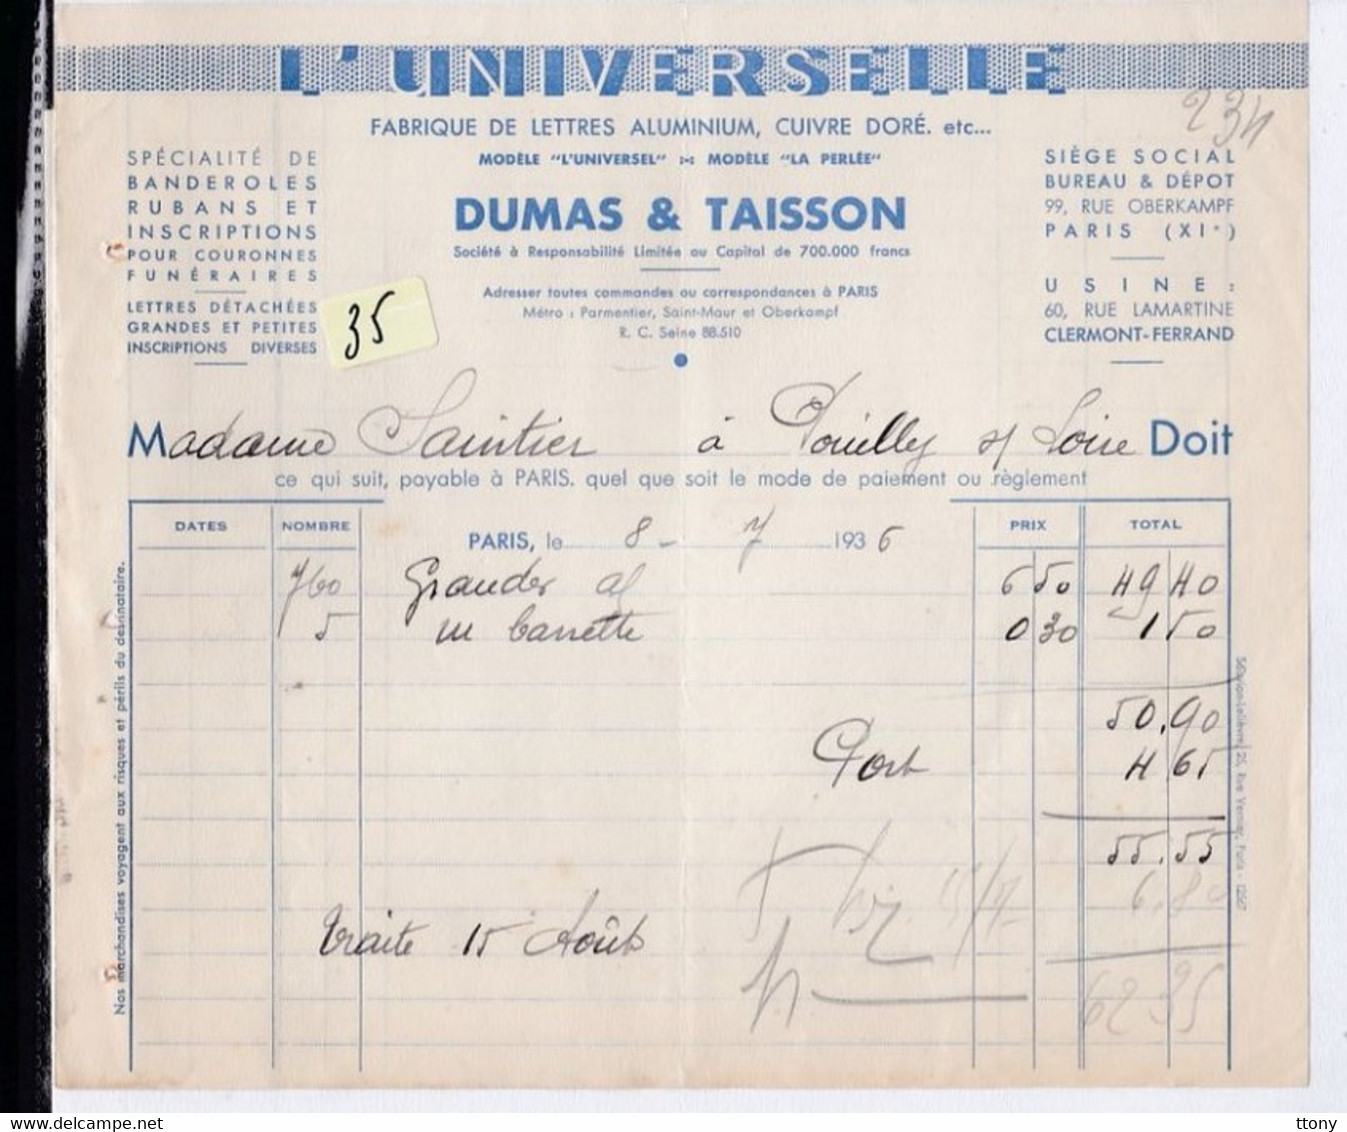 L'UNIVERSELLE
234
FABRIQUE DE LETTRES ALUMINIUM, CUIVRE DORÉ. etc...
MODÈLE "L'UNIVERSEL" MODÈLE "LA PERLÉE"
DUMAS & TAISSON
Société à Responsabilité Limitée au Capital de 700.000 francs
Adresser toutes commandes ou correspondances à PARIS
Métro : Parmentier, Saint-Maur et Oberkampf
R. C. Seine 88.510
SPÉCIALITÉ DE
BANDEROLES
RUBANS ET
INSCRIPTIONS
POUR COURONNES
FUNÉRAIRES
LETTRES DÉTACHÉES
GRANDES ET PETITES
INSCRIPTIONS DIVERSES
35
SIÈGE SOCIAL
BUREAU & DÉPOT
99, RUE OBERKAMPF
PARIS (XIe)
USINE :
60, RUE LAMARTINE
CLERMONT-FERRAND
Madame Saintier à Pouilly s/ Loire Doit
ce qui suit, payable à PARIS. quel que soit le mode de paiement ou règlement
DATES NOMBRE PARIS, le 8 - 7 1936 PRIX TOTAL
760 Grandes al 6 50 49 40
5 m barrette 0 30 1 50
50.90
Port 4 65
55.55
6.80
traite 15 Août
62 35
Nos marchandises voyagent aux risques et périls du destinataire.
25, Rue Vernier, Paris - 12567
ttony